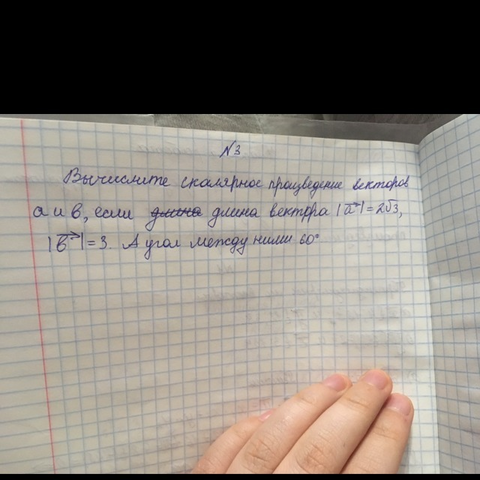 №3
Вычислите скалярное працведение векторов
а и в, если длина длина вектора |a→|=2√3,
|в→|=3. А угол между ними 60°